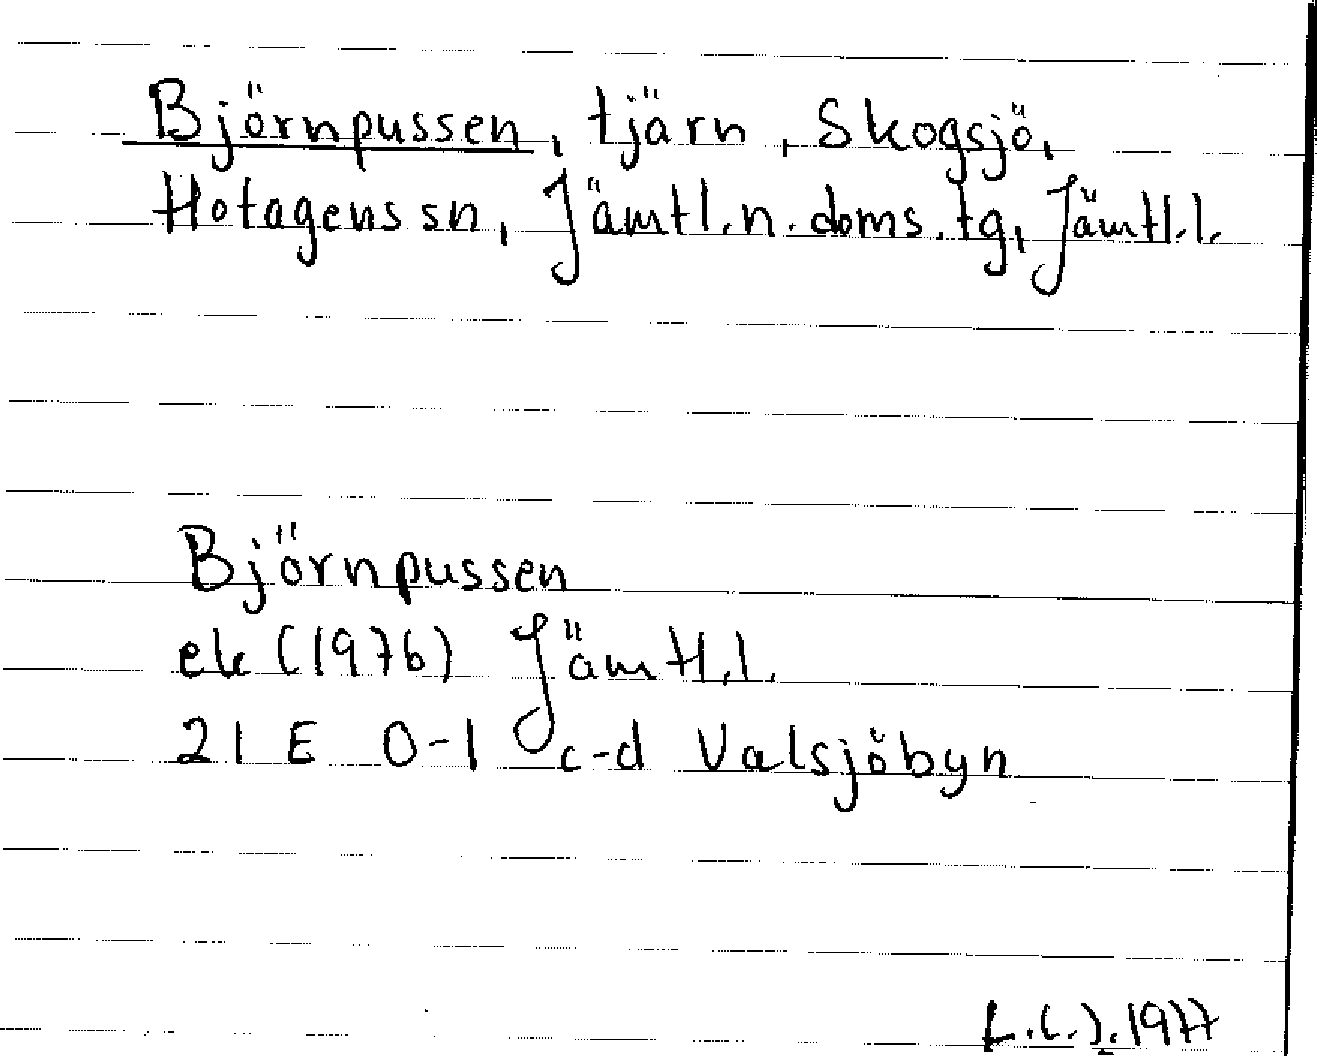 Björnpussen, tjärn, Skogsjö,
Hotagens sn, Jämtl.n. doms. tg, Jämtl.l.
Björnpussen
ek (1976) Jämtl.l.
21 E 0-1 c-d Valsjöbyn
1977